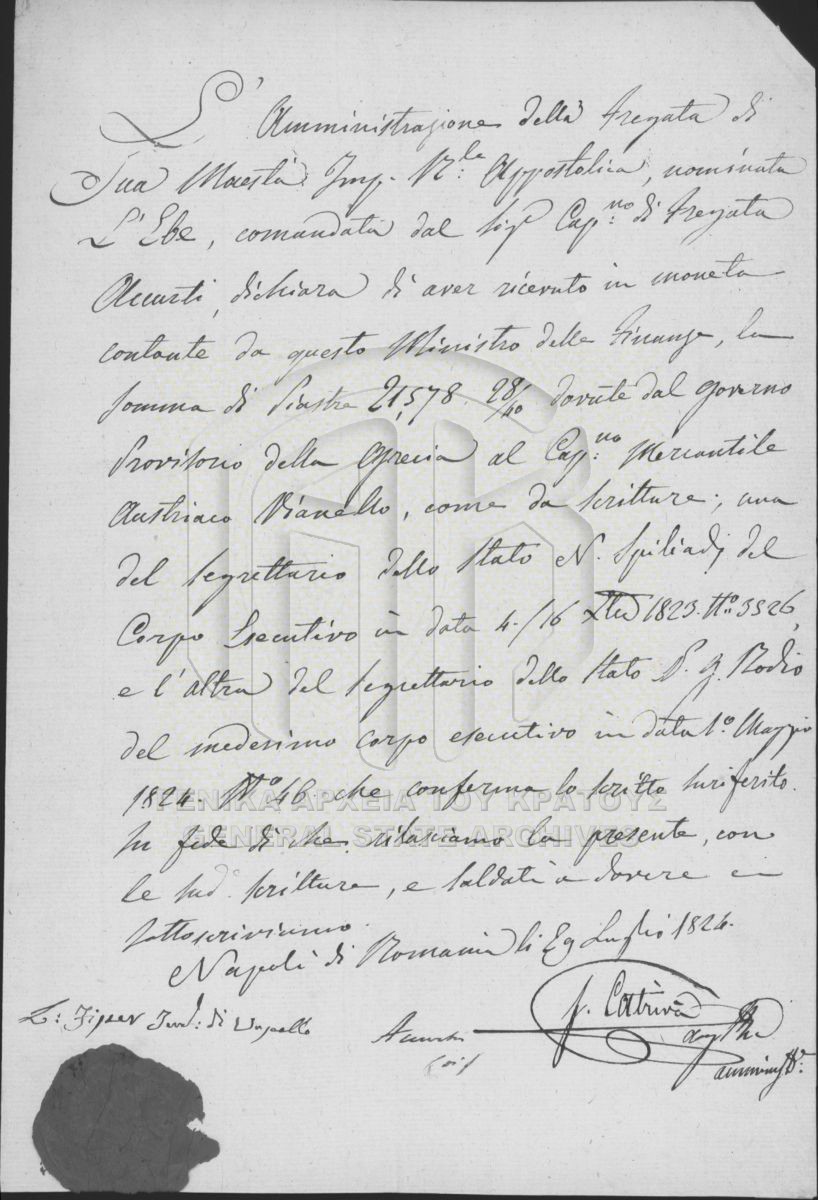 L'Amministrazione della Fregata di
Sua Maestà Imp. R:le Appostolica, nominata
L'Ebe, comandata dal Sigr Cap:no di Fregata
Accurti, dichiara di aver ricevuto in moneta
contante da questo Ministro delle Finanze, la
somma di Piastre 21,578. 28/40 dovute dal Governo
Provisorio della Grecia al Cap:no Mercantile
Austriaco Vianello, come da scritture; una
del Segrettario dello Stato N. Spiliadj del
Corpo Esecutivo in data 4./16 1823. No: 3526,
e l'altra del Segrettario dello Stato P. G. Rodio
del medesimo corpo esecutivo in data 1.o Maggio
1824 No 46 che conferma lo scritto suriferito.
In fede di che rilasciamo la presente, con
le sud. scritture, e saldati a dovere ci
sottoscriviamo.
Napoli di Romania li 29 Luglio 1824.
L: di Vascello
Accurti
ΓΕΝΙΚΑ ΑΡΧΕΙΑ ΤΟΥ ΚΡΑΤΟΥΣ
GENERAL STATE ARCHIVES